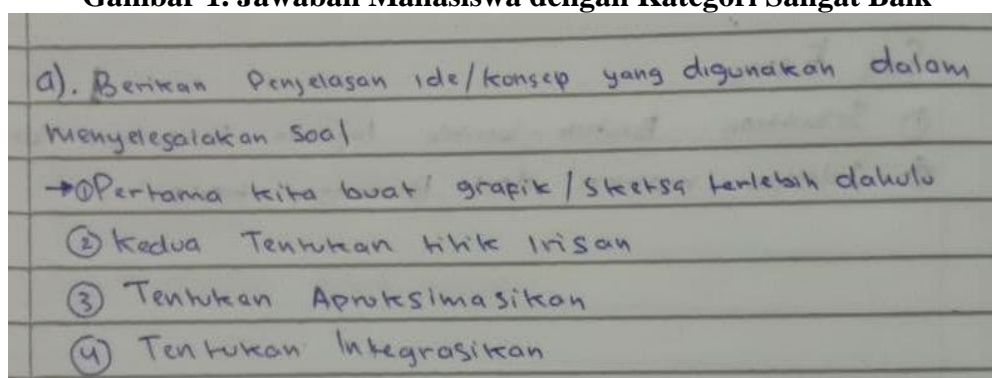 Gambar 1. Jawaban Mahasiswa dengan Kategori Sangat Baik
a). Berikan Penjelasan ide/konsep yang digunakan dalam
menyelesaiakan soal
→①Pertama kita buat grafik / sketsa terlebih dahulu
② Kedua Tentukan titik Irisan
③ Tentukan Aproksimasikan
④ Tentukan Integrasikan